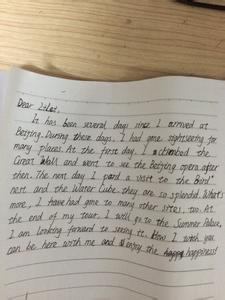 Dear Lilet,
It has been several days since I arrived at
Beijing. During these days, I had gone sightseeing for
many places. At the first day, I climbed the
Great Wall and went to see the Beijing opera after
then. The next day I paid a visit to the Bird'
nest and the Water Cube, they are so splendid. What's
more, I have had gone to many other sites, too. At
the end of my tour, I will go to the Summer Palace,
I am looking forward to seeing it. How I wish you
can be here with me and enjoy the happiness!